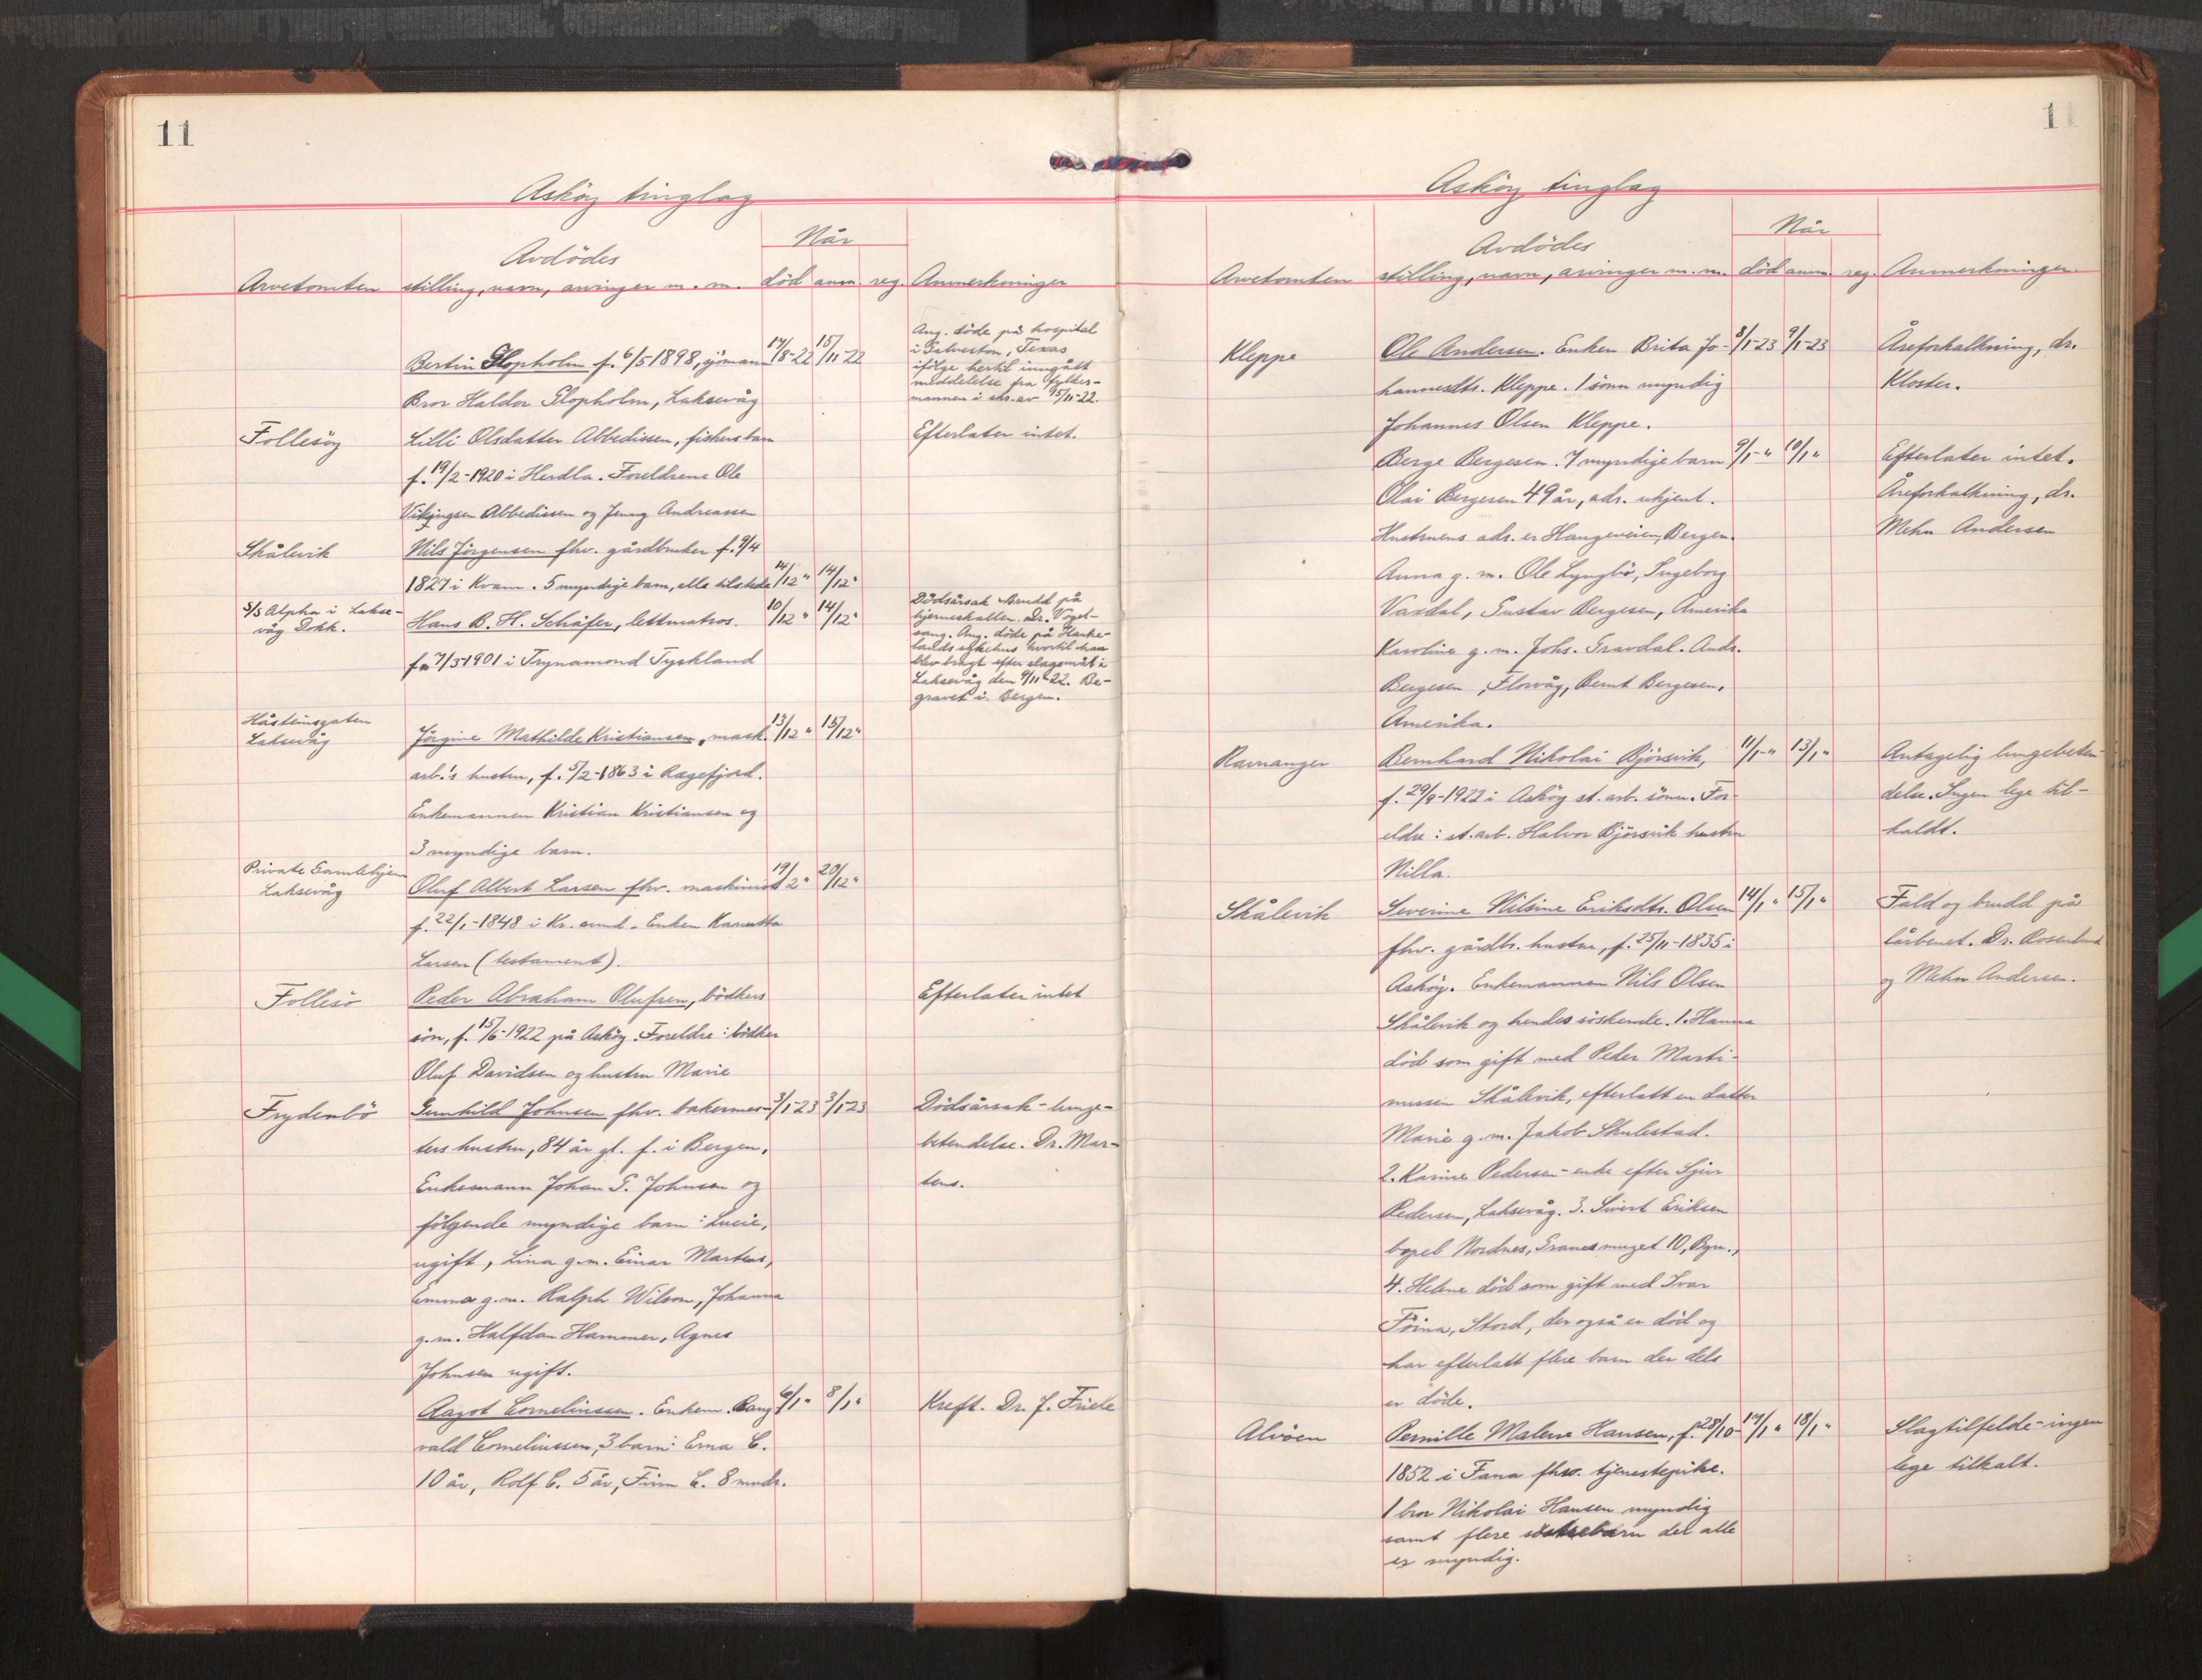 11
Asköy tinglag
Når
Avdödes
Arvetomten stilling, navn, arvinger m. m. död anm. reg. Anmerkninger
Bertin Glopholm f. 6/5 1898, sjömann 14/8-22 15/11-22
Bror Haldor Glopholm, Laksevåg
Ang. döde på hospital
i Galveston, Texas
ifölge hertil inngått
meddelelse fra fylkes-
mannen i skr. av 15/11-22.
Follesöy Lilli Olsdatter Abbedissen, fiskers barn Efterlater intet.
f. 19/2-1920 i Herdla. Foreldrene Ole
Vikingsen Abbedissen og Jenny Andreassen
Skålevik Nils Jörgensen fhv. gårdbruker f. 9/4
1827 i Kvam. 5 myndige barn, alle tilstede 14/12 " 14/12 "
s/s Alpha i Lakse-
våg Dokk.
Hans B. H. Schäfer, lettmatros. 10/12 " 14/12 "
f. 7/5-1901 i Trynamond Tyskland
Dödsårsak Brudd på
hjerneskallen. Dr. Vogel-
sang. Ang. döde på Hauke-
lands sykehus hvortil han
blev bragt efter slagsmål i
Laksevåg den 9/11-22. Be-
gravet i Bergen.
Håsteinsgaten
Laksevåg
Jörgine Mathilde Kristiansen, mask. 13/12 " 15/12 "
arb.'s hustru, f. 5/2-1863 i Ragefjord.
Enkemannen Kristian Kristiansen og
3 myndige barn.
Private Gamlehjem
Laksevåg
Oluf Albert Larsen fhv. maskinist 19/12 " 20/12 "
f. 22/1-1848 i Kr. sund. Enken
Larsen (testament).
Follesö Peder Abraham Olufsen, bödkers Efterlater intet
sön, f. 15/6-1922 på Asköy. Foreldre: bödker
Oluf Davidsen og hustru Marie
Frydenbö Gunhild Johnsen fhv. bakermes- 3/1-23 3/1-23 Dödsårsak - lunge-
ters hustru, 84 år gl. f. i Bergen. betendelse. Dr. Mar-
Enkemann Johan G. Johnsen og tens.
fölgende myndige barn: Lucie,
ugift, Lina g.m. Einar Martens,
Emma g.m. Ralph Wilson, Johanna
g.m. Halfdan Hammer, Agnes
Johnsen ugift.
Aagot Corneliussen. Enkem. Rang- 6/1 " 8/1 " Kreft. Dr. J. Friele
vald Corneliussen, 3 barn: Erna C.
10 år, Rolf C. 5 år, Finn C. 8 mndr.
11
Asköy tinglag
Når
Avdödes
Arvetomten stilling, navn, arvinger m. m. död anm. reg. Anmerkninger.
Kleppe Ole Andersen. Enken Brita Jo- 8/1-23 9/1-23 Åreforkalkning, dr.
hannesdtr. Kleppe. 1 sönn myndig Kloster.
Johannes Olsen Kleppe.
Berge Bergesen. 7 myndige barn 9/1 - " 10/1 " Efterlater intet.
Olai Bergesen 49 år, adr. ukjent. Åreforkalkning, dr.
Hustruens adr. er Haugeveien, Bergen. Mehn Andersen
Anna g. m. Ole Lyngbö, Ingeborg
Vardal, Gustav Bergesen, Amerika
Karoline g. m. Johs. Gravdal. Andr.
Bergesen, Florvåg, Bernt Bergesen,
Amerika.
Ravnanger Bernhard Nikolai Björsvik, 11/1 - " 13/1 " Antagelig lungebeten-
f. 29/9-1922 i Asköy st. arb. sönn. For- delse. Ingen lege til-
eldre: st. arb. Halvor Björsvik hustru kaldt.
Nilla.
Skålevik Severine Nilsine Eriksdtr. Olsen 14/1 " 15/1 " Fald og brudd på
fhv. gårdbr. hustru, f. 25/11-1835 i lårbenet. Dr. Rosenlund
Asköy. Enkemannen Nils Olsen og Mehn Andersen.
Skålevik og hendes söskende. 1. Hanna
död som gift med Peder Marti-
nussen Skålevik, efterlatt en datter
Marie g. m. Jakob Skulestad.
2. Karine Pedersen - enke efter Sjur
Pedersen, Laksevåg. 3. Sivert Eriksen
bopel Nordnes, Granesmuget 10, Bgn.,
4. Helene död som gift med Ivar
Föina, Stord, der også er död og
har efterlatt flere barn der dels
er döde.
Alvöen Pernille Malene Hansen, f. 28/10- 17/1 " 18/1 " Slagtilfelde - ingen
1852 i Fana fhv. tjenestepike. lege tilkalt.
1 bror Nikolai Hansen myndig
samt flere der alle
er myndig.